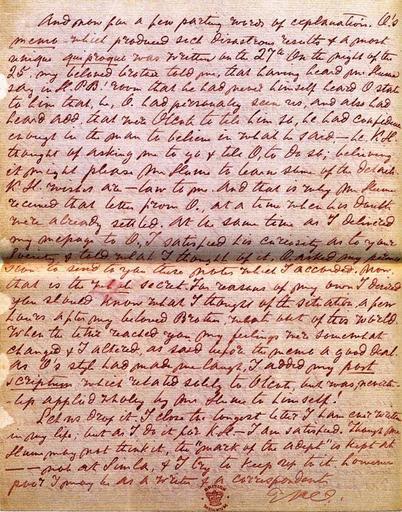 And now for a few parting words of explanation. O's
memo which produced such disastrous results & a most
unique quiproquo was written on the 27th. On the night of the
25th, my beloved Brother told me, that having heard Mr. Hume
say in H.P.B.'s room that he had never himself heard O state
to him that he, O. had personally seen us, and also had
heard add, that were Olcott to tell him so, he had confidence
enough in the man to believe in what he said — he, K.H.
thought of asking me to go & tell O. to do so; believing
it might please Mr. Hume to learn some of the details.
K.H. wishes are — law to me. And that is why Mr. Hume
received that letter from O., at a time when his doubts
were already settled. At the same time as I delivered
my message to O, I satisfied his curiosity as to your
Society & told what I thought of it. O. asked my permis-
sion to send to you these notes which I accorded. Now,
that is the whole secret. For reasons of my own I desired
you should know what I thought of the situation, a few
hours after my beloved Brother, went out of this world.
When the letter reached you my feelings were somewhat
changed & I altered, as said before the memo a good deal.
As O's style had made me laugh, I added my post
scriptum which related solely to Olcott but was, never-
applied wholly by Mr. Hume to himself!
Let us drop it. I close the longest letter I have ever written
in my life; but as I do it for K.H. — I am satisfied. Though Mr.
Hume may not think it, the "mark of the adept" is kept at
— — not at Simla, & I try to keep up to it, however
poor I may be as a writer & a correspondent